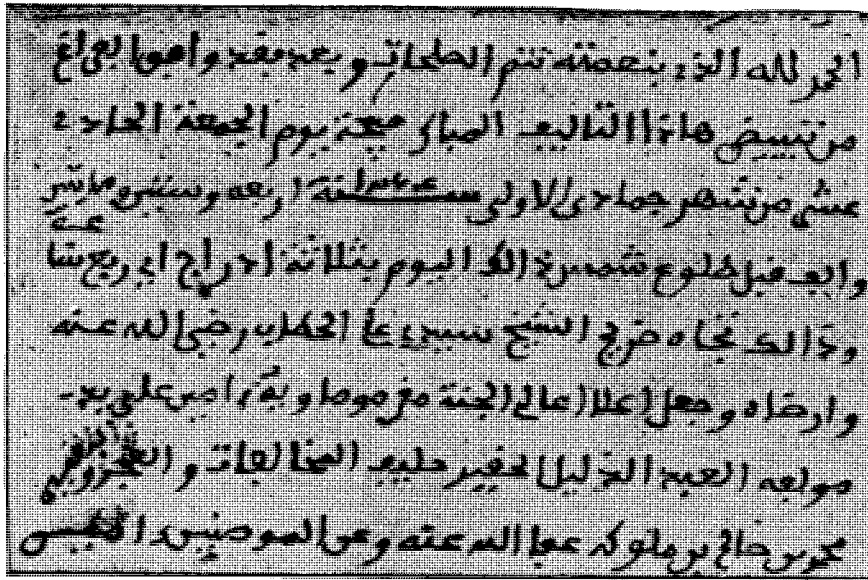 الحمد لله الذى بنعمته تتم الصلحات وبعد فقد وافق الفراغ
من تبييض هاذا التاليف المبارك صبيحة يوم الجمعة الحادى
عشر من شهر جمادى الاولى سنة اربعة وستين ومايتين
والف قبل طلوع شمس ذالك اليوم بثلاثة ادراج اي ربع ساعة
وذالك تجاه ضريح الشيخ سيدي على الحطاب رضى الله عنه
وارضاه وجعل اعلا اعالى الجنة ماواه امين على يد
مولفه العبد الذليل الحقير حليف المخالفات و
محمد بن صالح بن ملوكه عفا الله عنه وعن المومنين